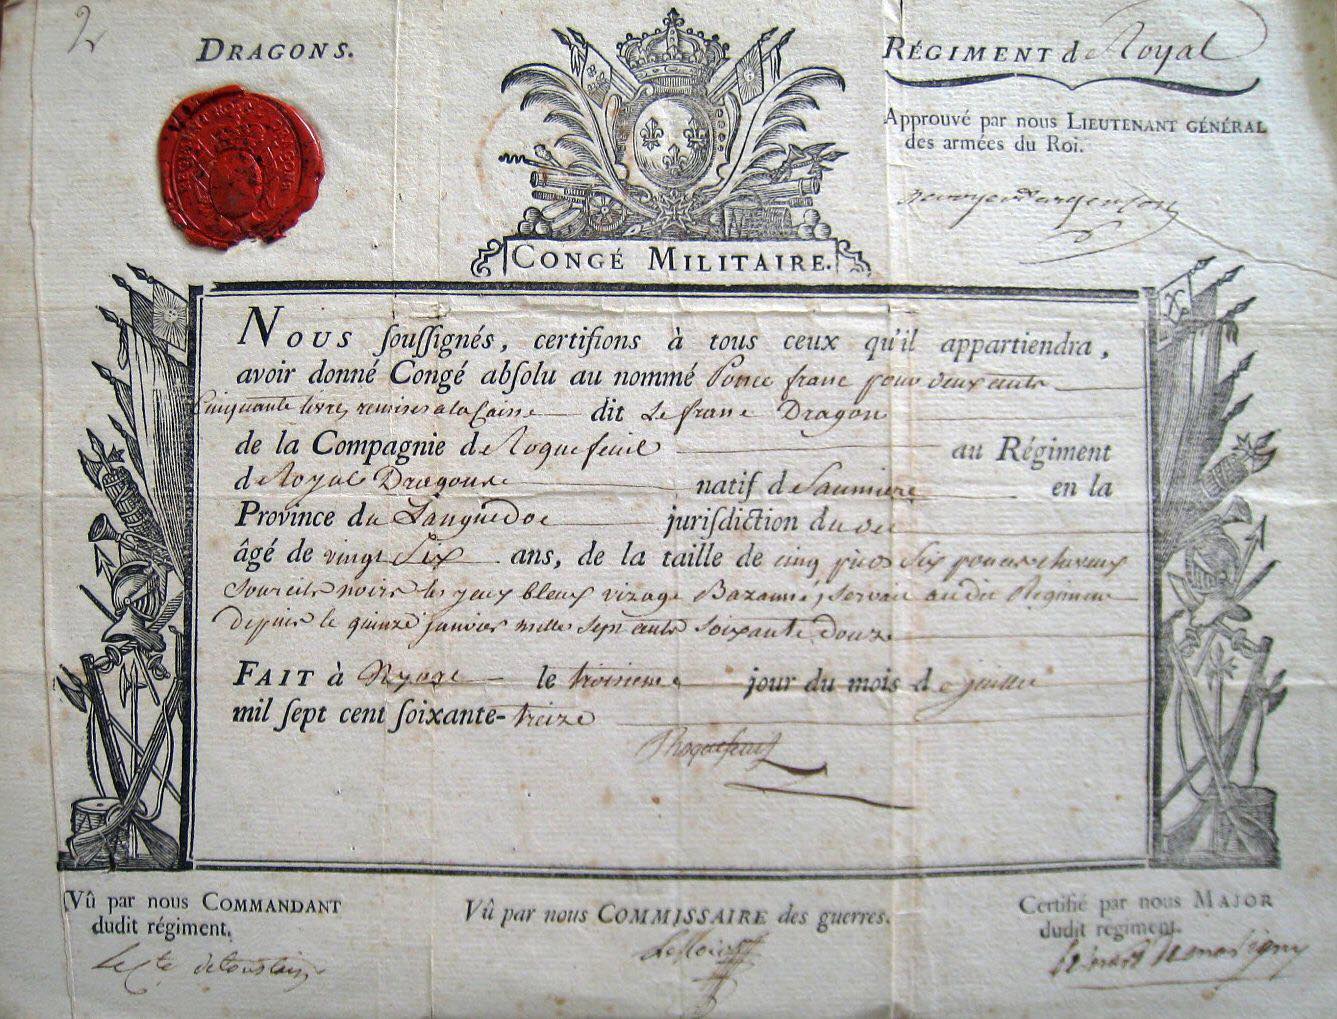 2
DRAGONS.
RÉGIMENT de Royal
Approuvé par nous LIEUTENANT GÉNÉRAL
des armées du Roi.
CONGÉ MILITAIRE.
Nous souſſignés, certifions à tous ceux qu'il appartiendra,
avoir donné Congé abſolu au nommé Ponce franc pour deux cents
Cinquante livres remises a la Caisse dit Le franc Dragon
de la Compagnie de Roquefeuil au Régiment
de Royal Dragons natif de Saumiere en la
Province du Languedoc juriſdiction du dit
âgé de vingt Six ans, de la taille de cinq pieds Six pouces cheveux
Sourcils noirs les yeux bleus visage Bazanné, Servant audit Regiment
Depuis le quinze janvier mille Sept cents Soixante Douze
FAIT à le troisieme jour du mois de juillet
mil ſept cent ſoixante-treize
Roquefeuil
Vû par nous COMMANDANT
dudit régiment.
Le Cte de Toustain
Vû par nous COMMISSAIRE des guerres.
Certifié par nous MAJOR
dudit régiment.